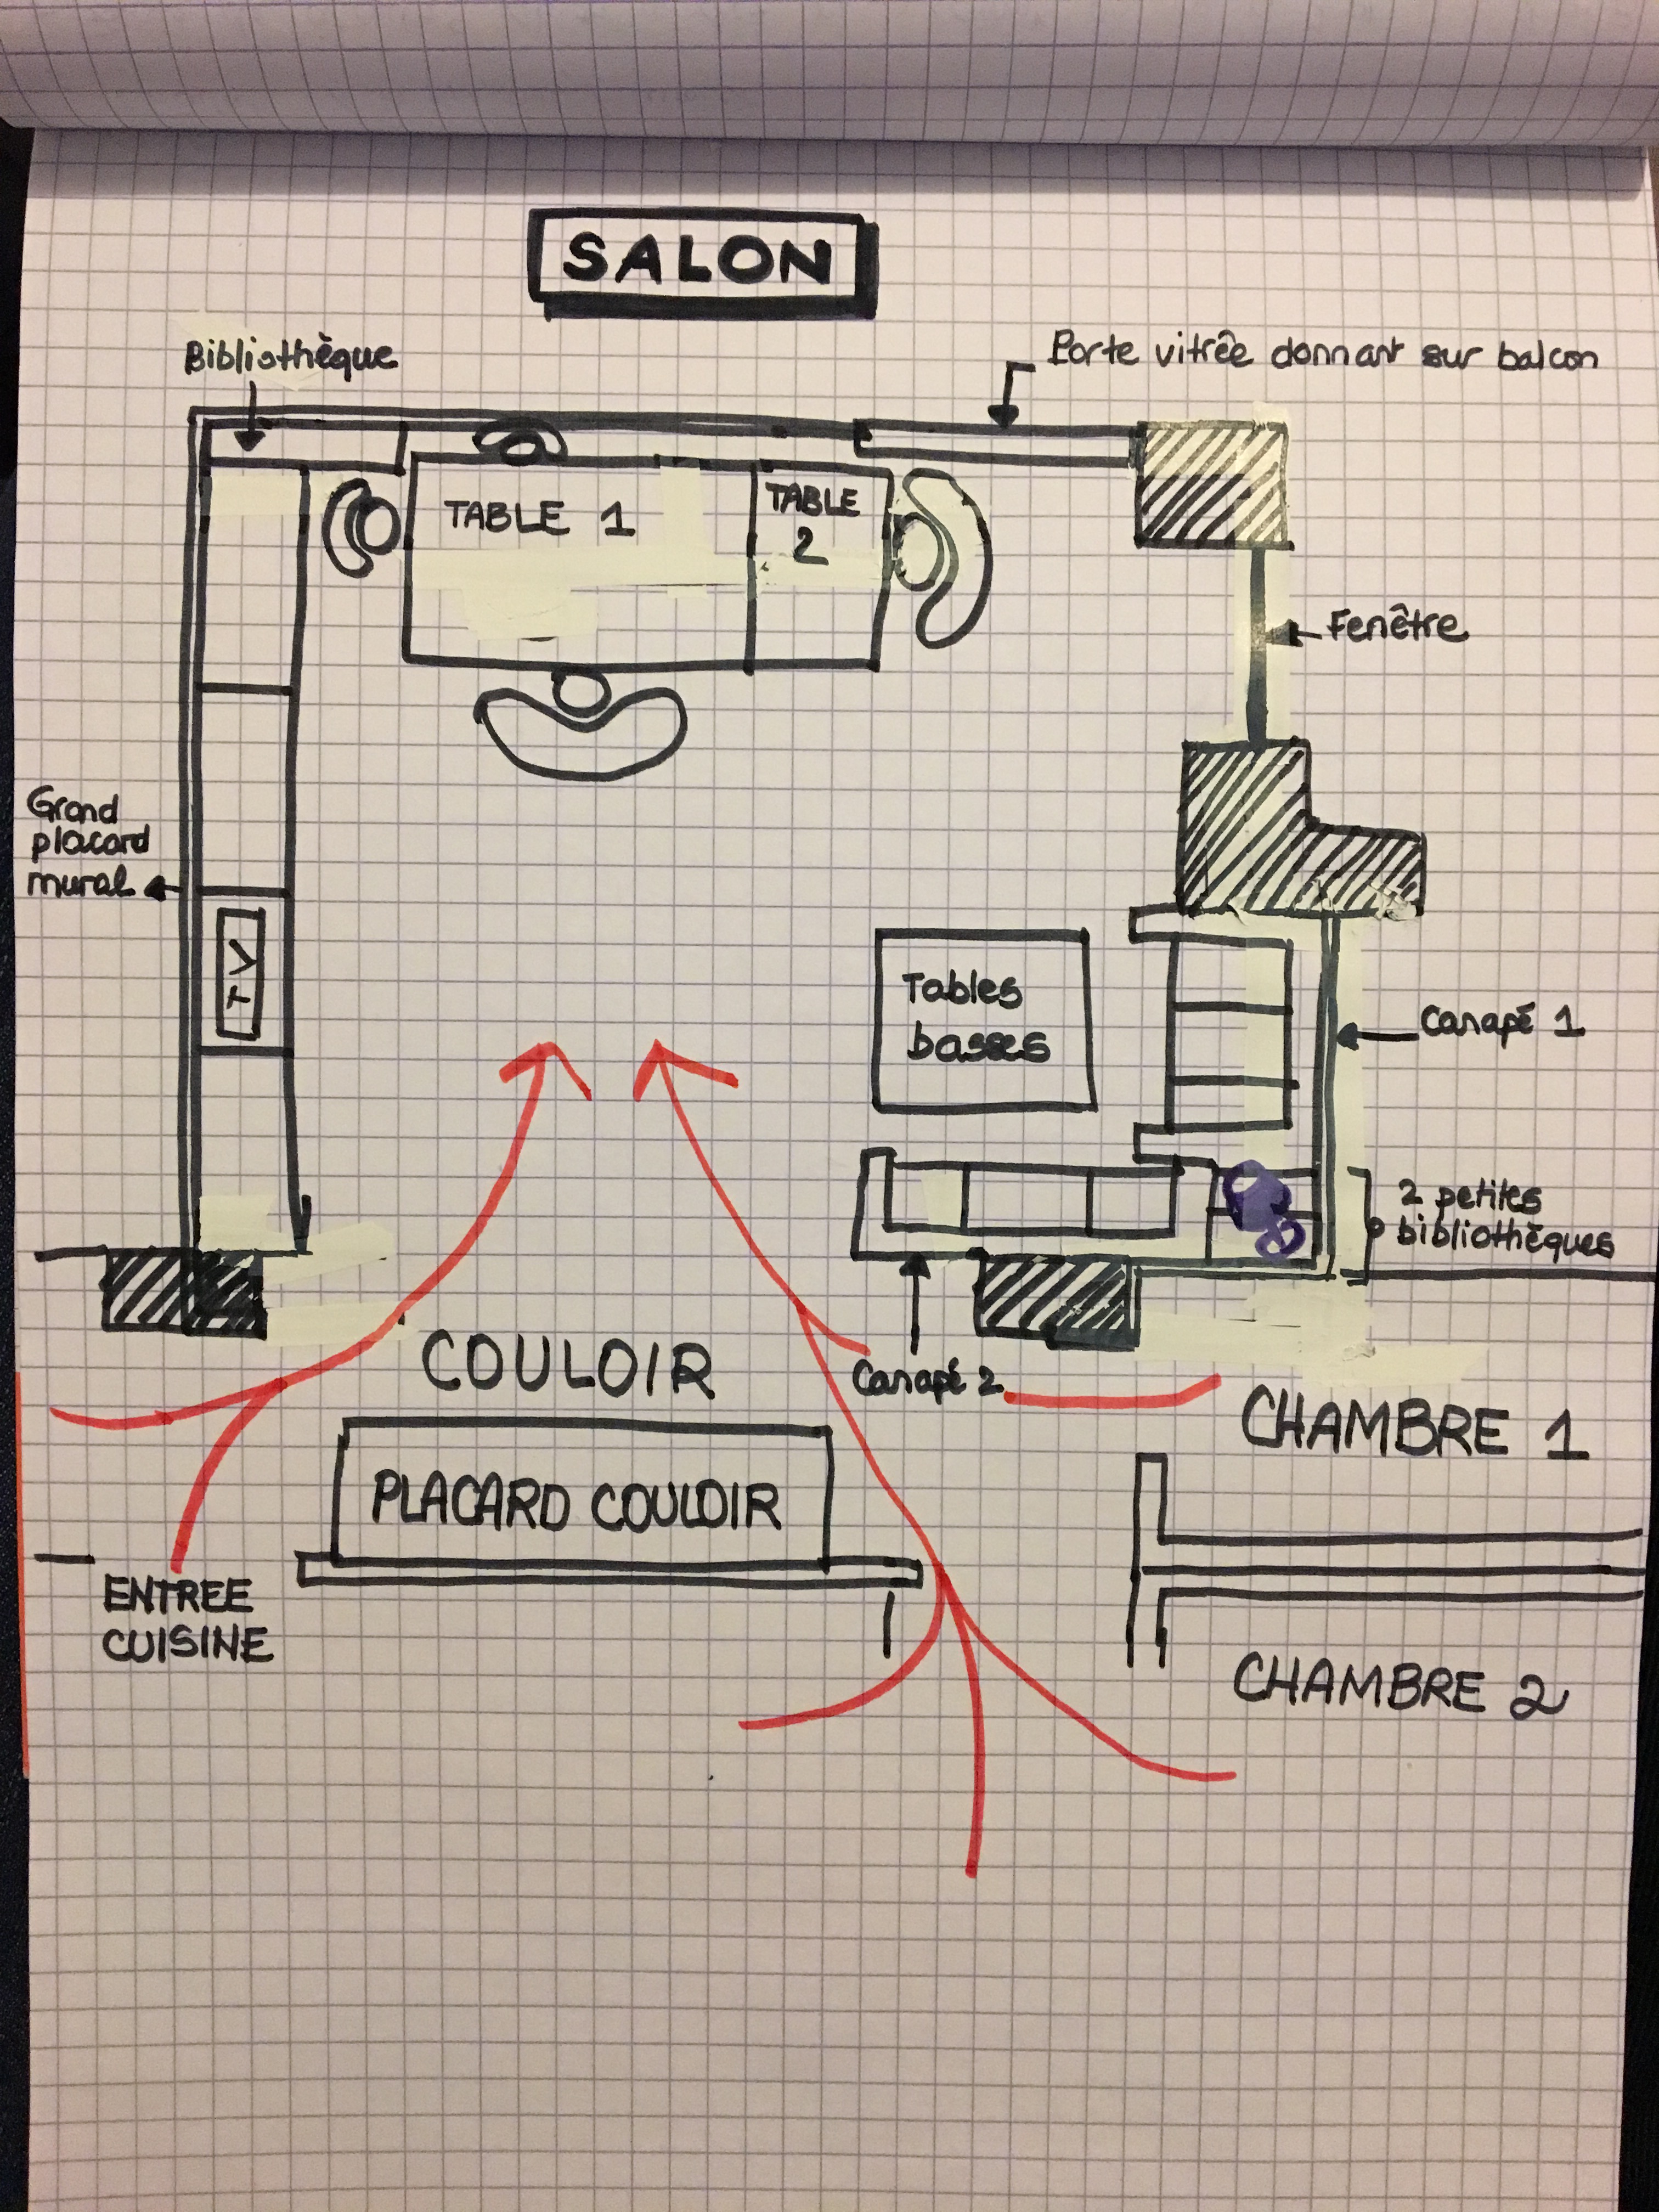 SALON
Bibliothèque
Porte vitrêe donnant sur balcon
TABLE 1
TABLE
2
Fenêtre
Grand
placard
mural
TV
Tables
basses
Canapé 1
2 petites
bibliothèques
COULOIR
Canapé 2
CHAMBRE 1
PLACARD COULOIR
ENTREE
CUISINE
CHAMBRE 2